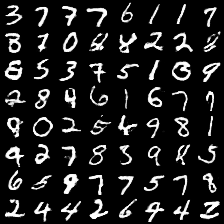 3 7 7 7 6 1 1 7
8 7 0 8 8 2 2 0
6 5 3 7 5 1 0 9
2 8 9 6 1 6 7 7
8 0 2 5 6 9 8 1
9 2 7 8 3 9 4 5
6 5 9 7 7 5 7 8
2 4 4 2 6 4 4 2